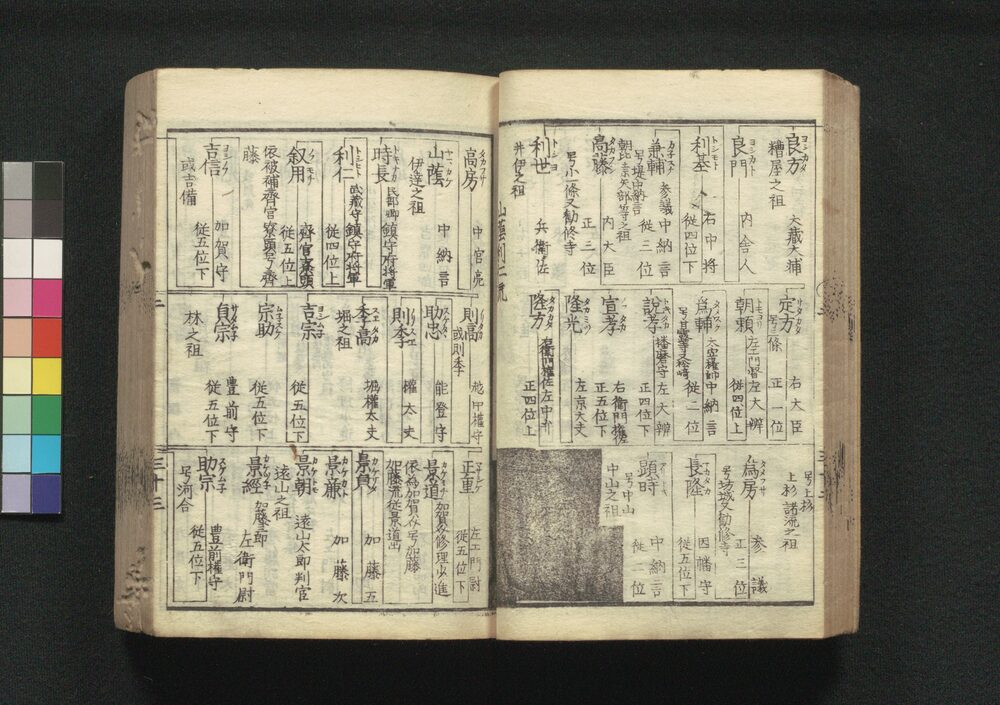 良方 ヨシカタ 大蔵大輔
糟屋之祖
良門 ヨシカト 内舎人
利基 トシモト 右中将 従四位下
兼輔 カネスケ 参議 中納言 従三位
号堤中納言
高藤 タカフヂ 内大臣 正三位
号小一條又勧修寺
利世 トシヨ 兵衛佐
井伊之祖
定方 サタカタ 右大臣 正二位
号三條
朝頼 トモヨリ 左門督左大辨 従四位上
為輔 タメスケ 大宰権帥中納言 従二位
説孝 トキタカ 播磨守左大辨 正四位下
宣孝 ノフタカ 右衛門権佐 正五位下
隆光 タカミツ 左京大夫
隆方 タカカタ 右衛門権佐左中弁 正四位上
号上杉
上杉諸流之祖
為房 タメフサ 参議 正三位
号坊城又勧修寺
長隆 ナカタカ 因幡守 従五位下
顕時 アキトキ 中納言 従二位
号中山
中山之祖
三十二
高房 タカフサ 中宮亮
山蔭 ヤマカケ 中納言
伊達之祖
時長 トキナカ 民部卿鎮守府将軍
利仁 トシモト 武蔵守鎮守府将軍 従四位上
叙用 ノフモチ 齊宮寮頭 従五位上
依被補齊宮寮頭号齊
藤
吉信 ヨシノフ 加賀守 従五位下
或吉備
則高 ノリタカ 越中権守
或則季
助忠 スケタヽ 能登守
則季 ノリスエ 権大夫
季高 スエタカ 堀権大夫
堀之祖
吉宗 ヨシムネ 従五位下
宗助 ムネスケ 従五位下
貞宗 サタムネ 豊前守 従五位下
林之祖
正重 マサシケ 左工門尉 従五位下
景道 カケミチ 加賀介修理少進
依為加賀介号加藤
加藤流従景道出
景員 カケカス 加藤五
景兼 カケカネ 加藤次
景朝 カケトモ 遠山太郎判官
遠山之祖
景経 カケツネ 加藤三郎 左衛門尉
助宗 スケムネ 豊前権守 従五位下
号河合
三十三